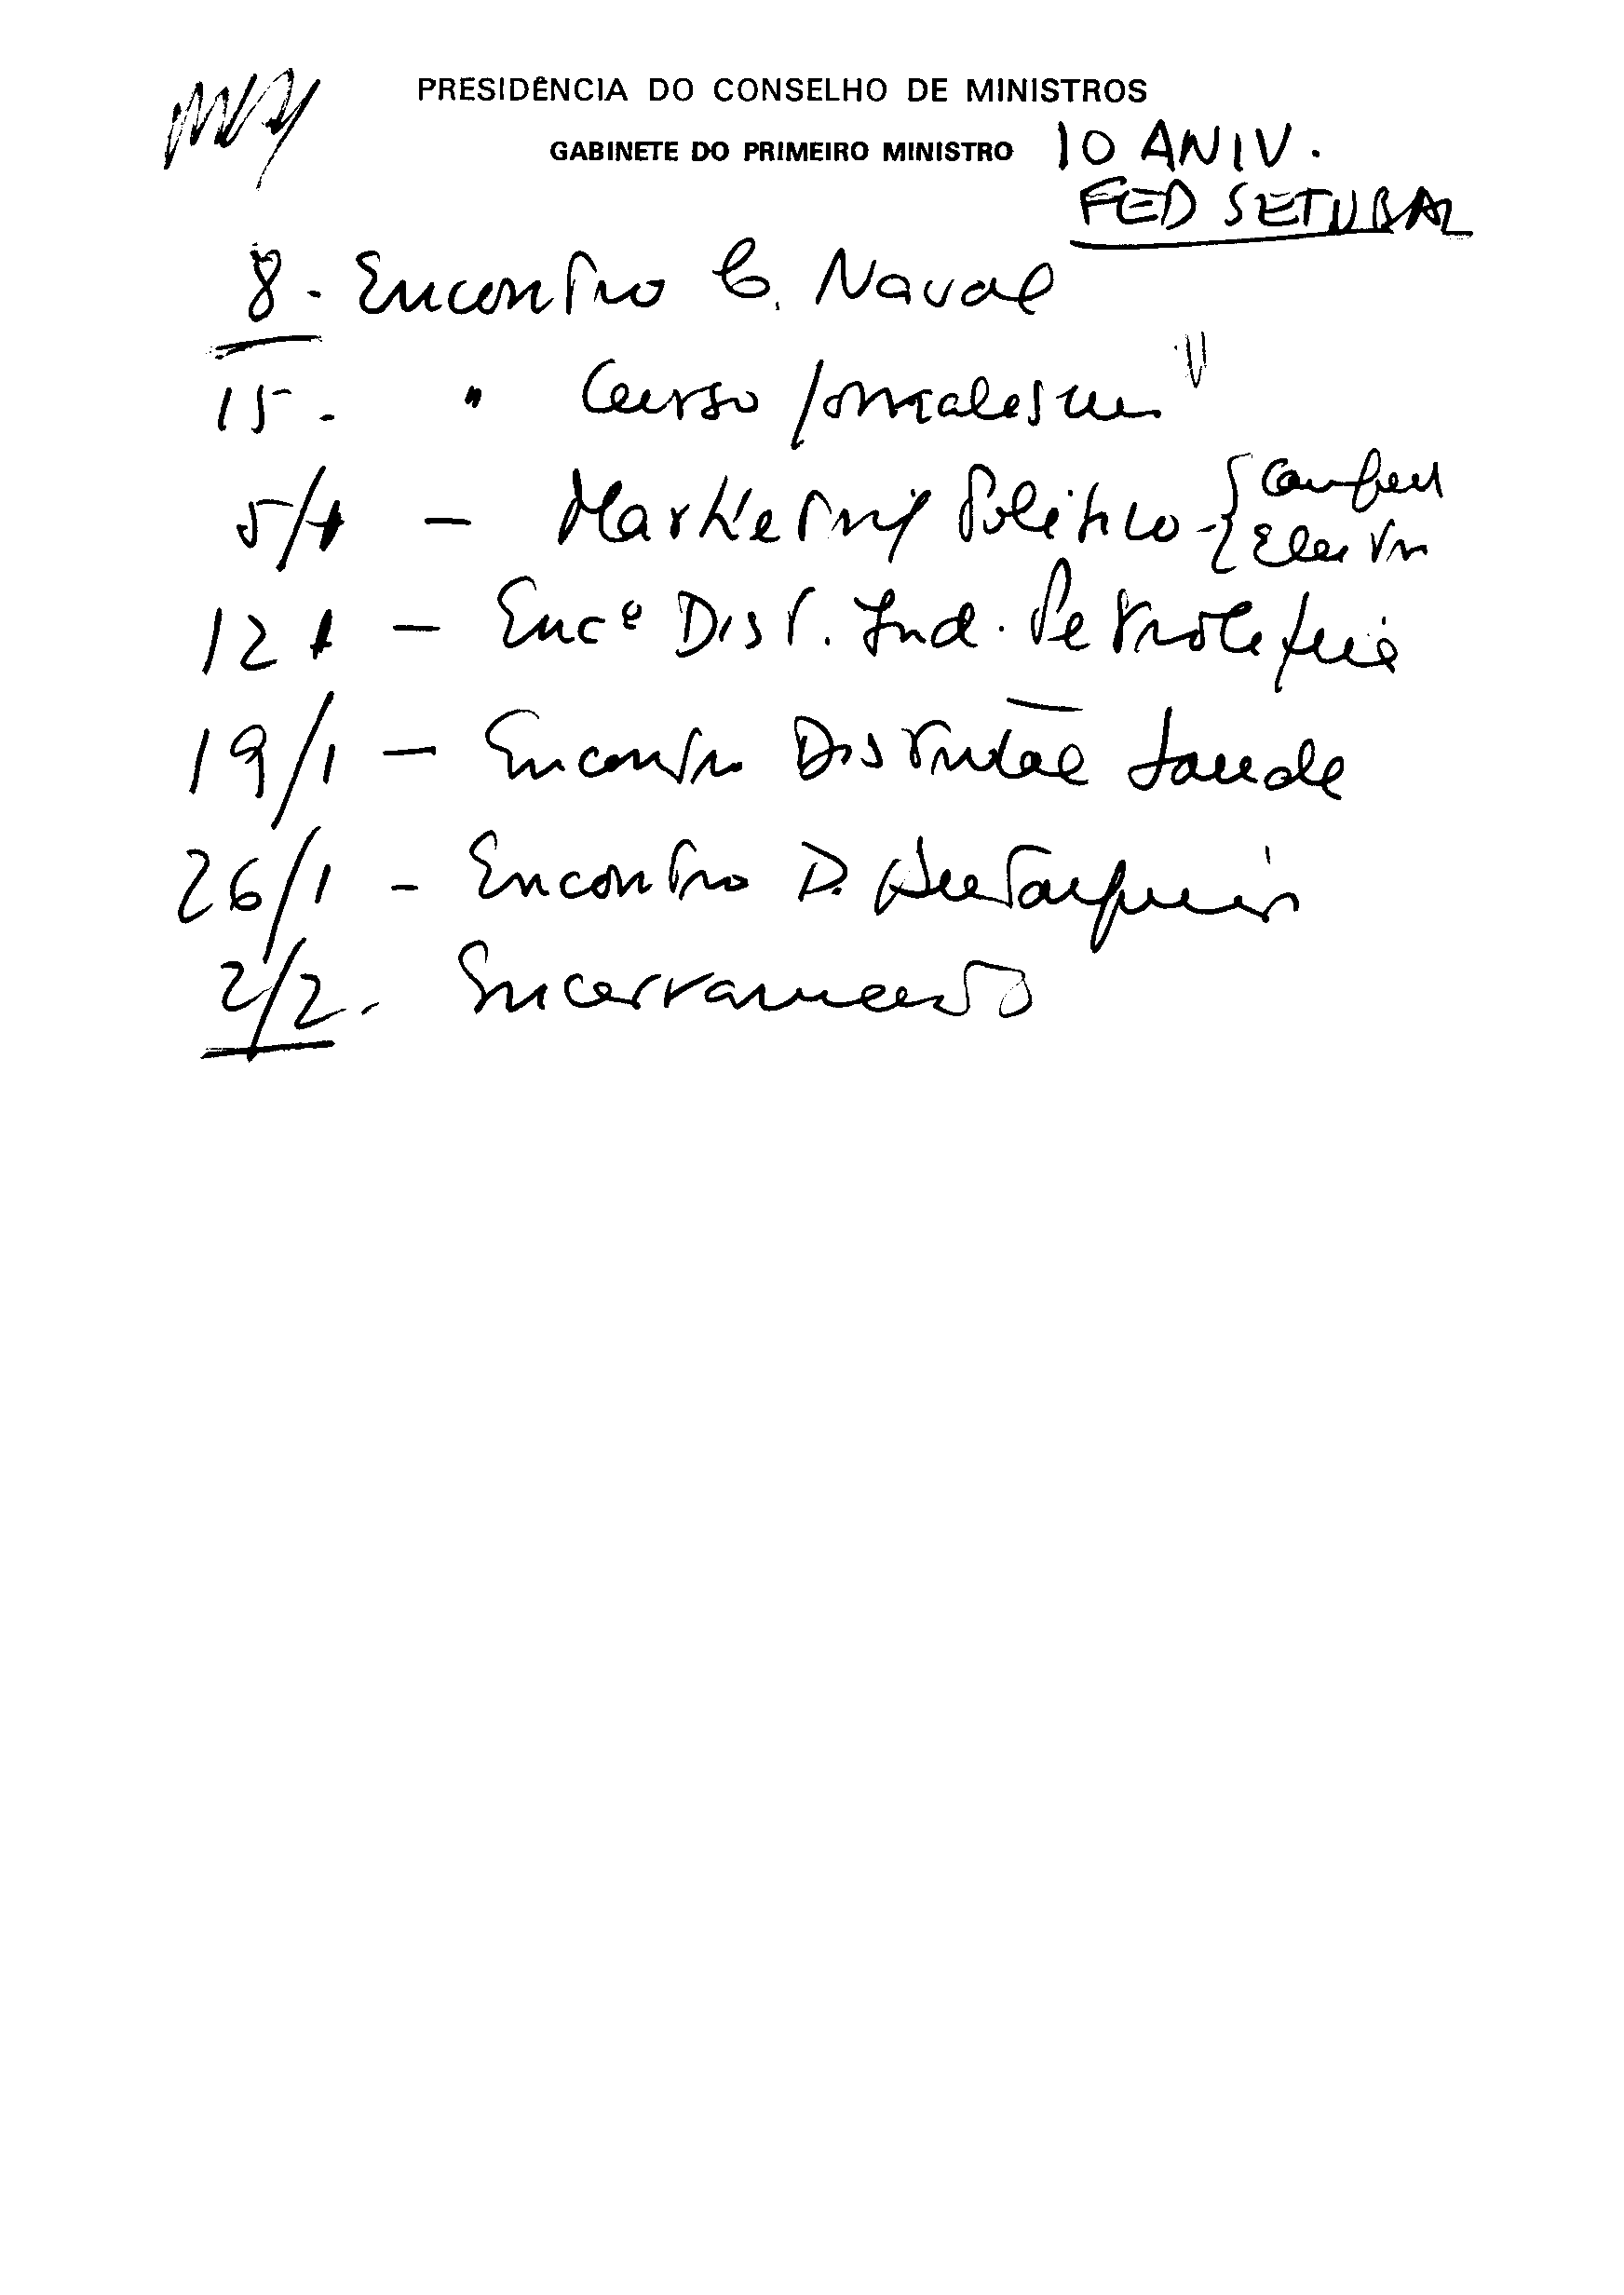 PRESIDÊNCIA DO CONSELHO DE MINISTROS
GABINETE DO PRIMEIRO MINISTRO
10 ANIV.
FED SETUBAL
8 - Encontro C. Naval
15 - " Curso Jornalismo
5/1 - Marketing Politico - {
12 1 - Encº Dist. Ind. Petrolifera
19/1 - Encontro Distrital Saude
26/1 - Encontro D. Autarquias
2/2 - Encerramento